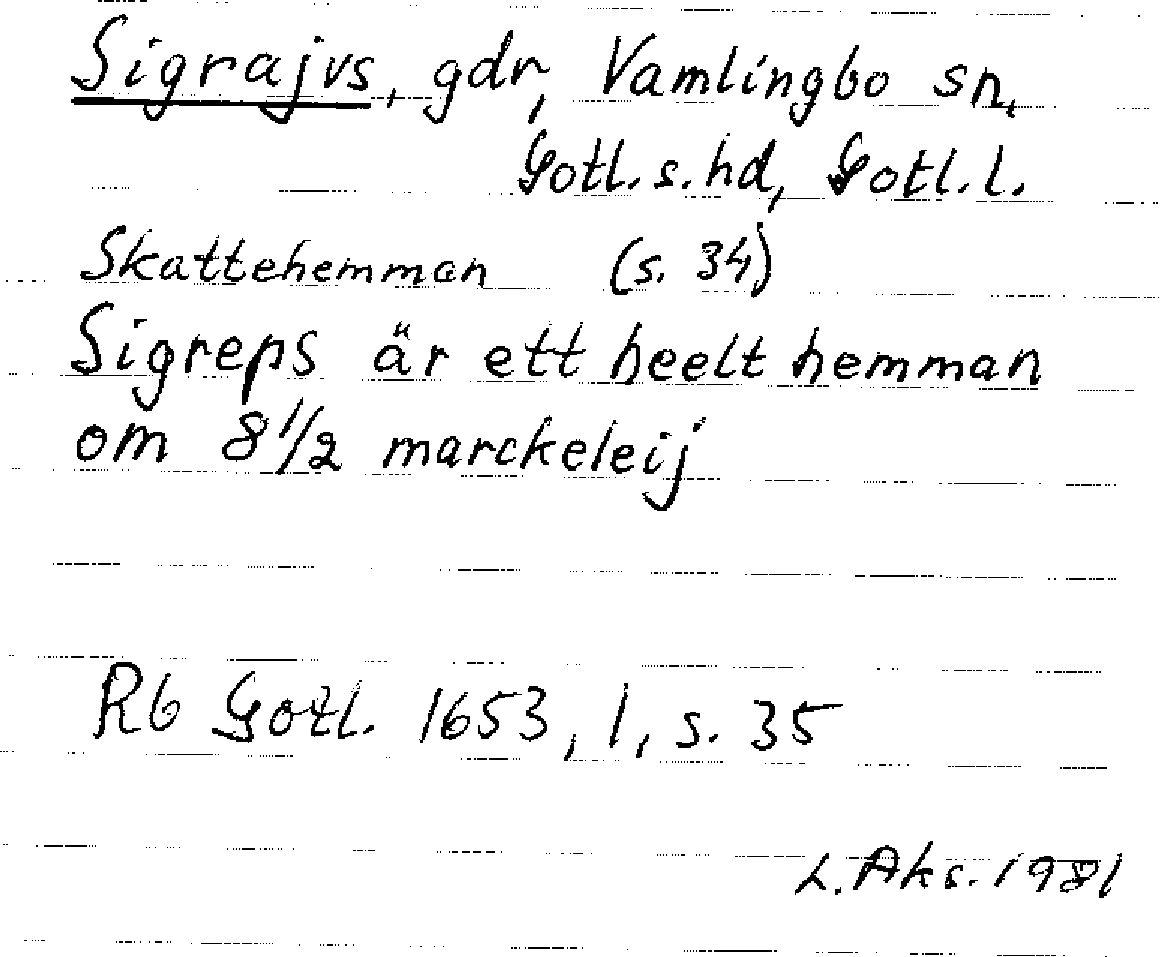 Sigrajvs, gdr, Vamlingbo sn,
Gotl. s. hd, Gotl. l.
Skattehemman (s. 34)
Sigreps är ett heelt hemman
om 8 1/2 marckeleij
Rb Gotl. 1653, 1, s. 35
L. Aks. 1981